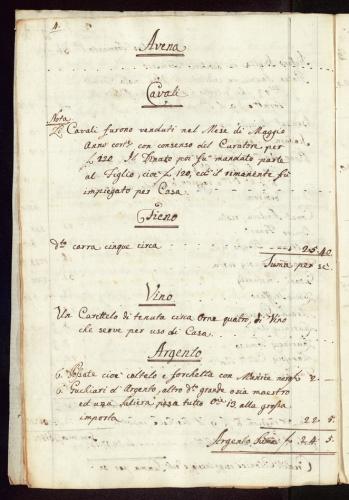 4.
Avena
Cavali
Nota
Li Cavali furono venduti nel Mese di Maggio
Anno corte con consenso del Curator per
f. 220 Il Ricavato poi fu mandato parte
al Figlio, cioe f. 120, ed il rimanente fu
impiegato per Casa.
Fieno
dto carra cinque circa 25.40
Suma per se
Vino
Un Carettelo di tenuta circa Orne quatro, di Vino
che serve per uso di Casa.
Argento
6. Possate cioe coltelo e forchetta con Manico 2.
6. Cuchiari d'Argento, altro dto grande osia maestro
ed una Saliera pesa tutto 13, alla grossa
importa 22 5.
Argento Suma f 24 5